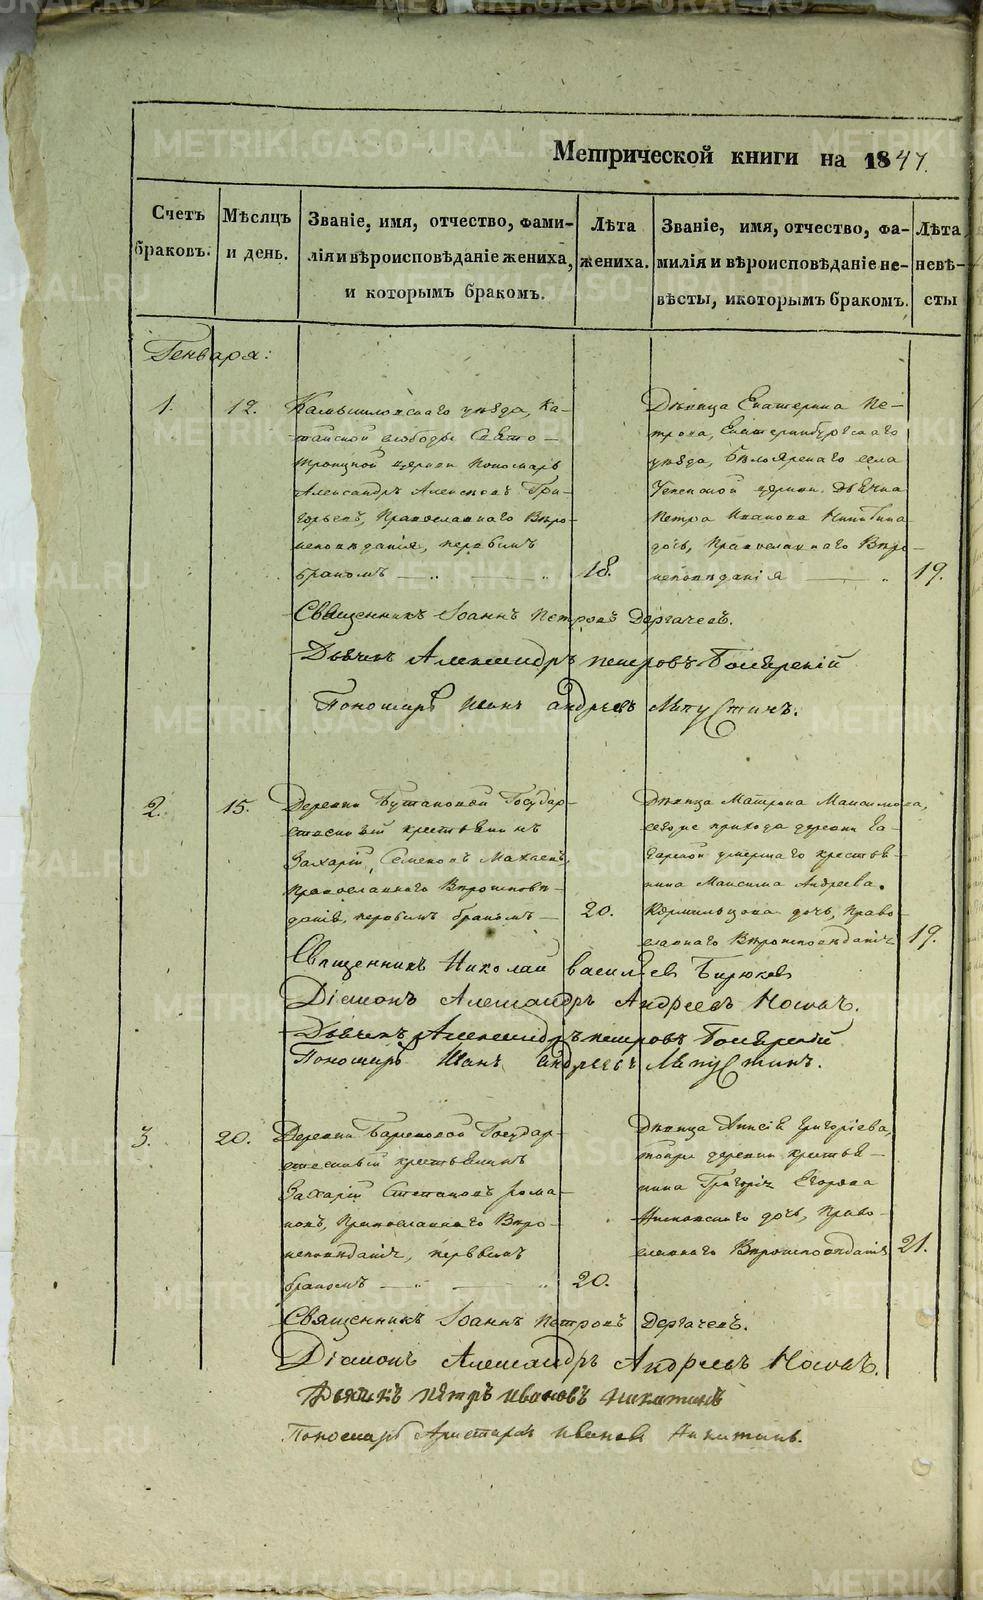 METRIKI.GASO-URAL.RU
Метрической книги на 1847.
Счетъ браковъ.
Мѣсяцъ и день.
Званіе, имя, отчество, фами-
лія и вѣроисповѣданіе жениха,
и которымъ бракомъ.
Лѣта
жениха.
Званіе, имя, отчество, фа-
милія и вѣроисповѣданіе не-
вѣсты, и которымъ бракомъ.
Лѣта
невѣ-
сты
Генваря:
1. 12.
Камышловскаго уѣзда, Ка-
тайской слободы Свято-
троицкой церкви Пономарь
Александръ Алексѣевъ Гри-
горьевъ, Православнаго Вѣро-
исповѣданія, первымъ
бракомъ 18.
Дѣвица Екатерина Пе-
трова, Екатеринбургскаго
уѣзда, Бѣлоярскаго села
церкви Дьячка
Петра Иванова Никитина
дочь, Православнаго Вѣро-
исповѣданія 19.
Священникъ Іоаннъ Петровъ Дергачевъ.
Дьячекъ Александръ Петровъ Боярскій
Пономарь Иванъ Андреевъ Ляпустинъ.
2. 15.
Деревни Государ-
ственный крестьянинъ
Захарій Семеновъ
Православнаго Вѣроисповѣ-
данія, первымъ бракомъ 20.
Дѣвица Матрона Максимова,
сегоже прихода деревни
умершаго крестья-
нина Максима Андреева
Кормильцова дочь, Право-
славнаго Вѣроисповѣданія 19.
Священникъ Николай Васильевъ Бирюковъ
Діаконъ Александръ Андреевъ Носовъ.
Дьячекъ Александръ Петровъ Боярскій
Пономарь Иванъ Андреевъ Ляпустинъ.
3. 20.
Деревни Государ-
ственный крестьянинъ
Захарій Степановъ Рома-
новъ, Православнаго Вѣро-
исповѣданія, первымъ
бракомъ 20.
Дѣвица Анисія Григоріева,
тойже деревни крестья-
нина Григорія Егорова
дочь, Право-
славнаго Вѣроисповѣданія 21.
Священникъ Іоаннъ Петровъ Дергачевъ.
Діаконъ Александръ Андреевъ Носовъ.
Дьячекъ Петръ Ивановъ Никитинъ
Пономарь Аристархъ Ивановъ Никитинъ.